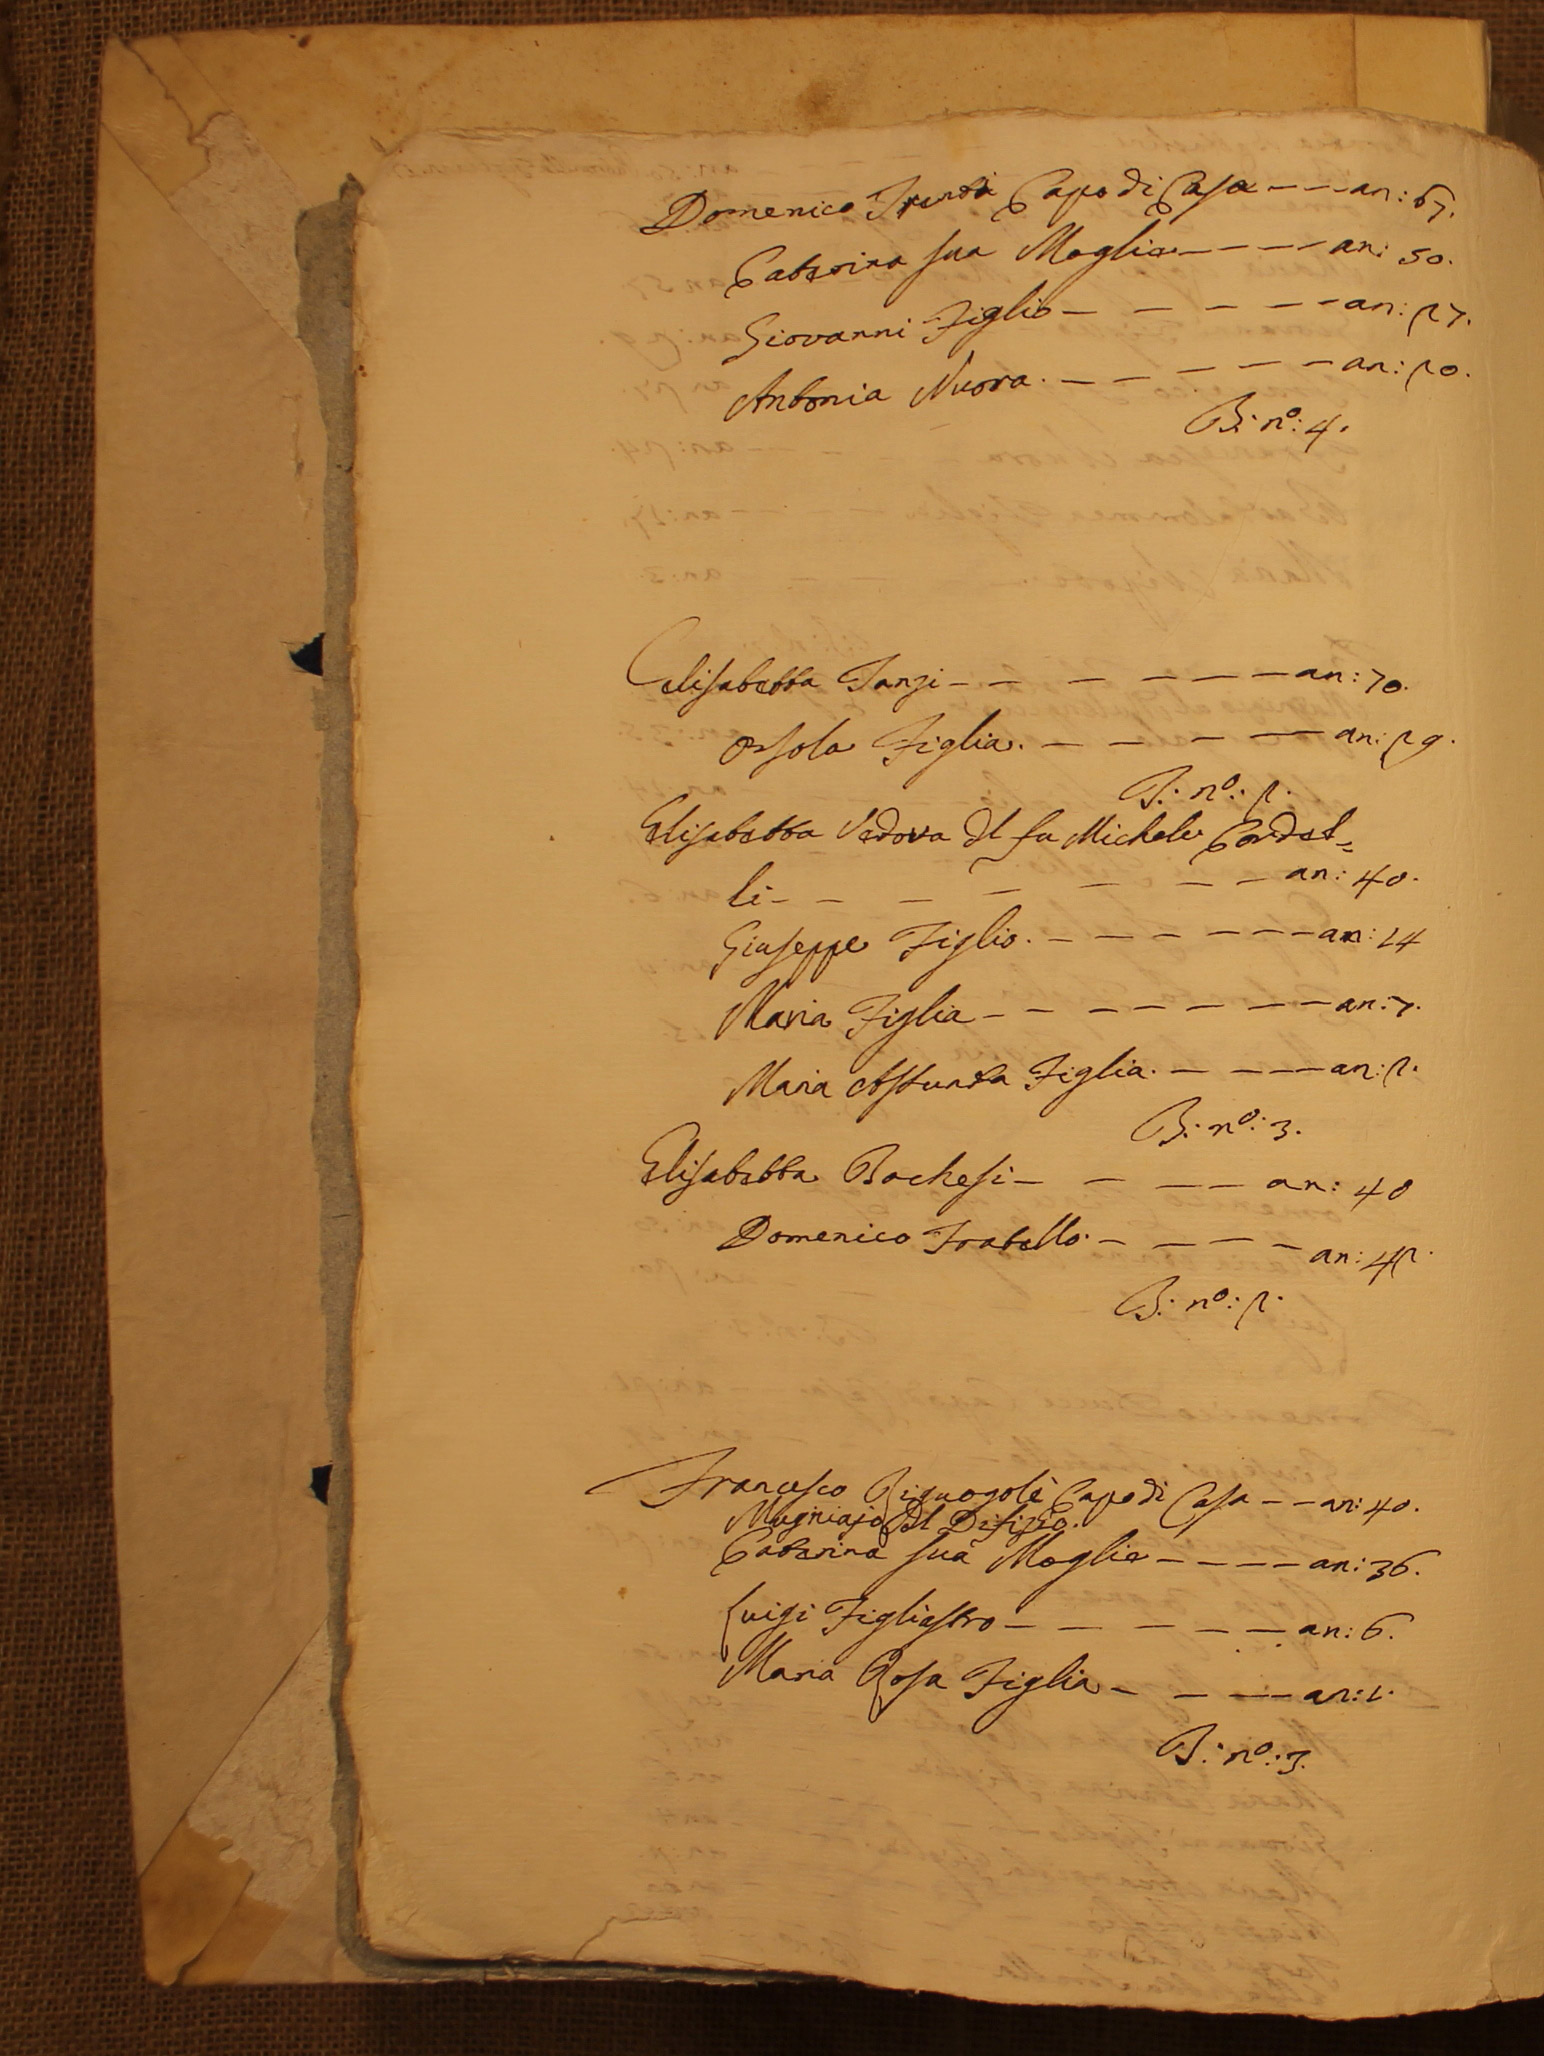 Domenico Trenti Capo di Casa — — an: 67.
Caterina sua Moglie — — — — an: 50.
Giovanni Figlio — — — — — an: 27.
Antonia Nuora. — — — — — an: 20.
B: nº: 4.
Elisabetta Tanzi — — — — — — an: 70.
Orsola Figlia. — — — — — an: 29.
B: nº: 2.
Elisabetta Vedova del fu Michele Cordel=
li — — — — — — an: 40.
Giuseppe Figlio. — — — — — — an: 14
Maria Figlia — — — — — — — an: 7.
Maria Assunta Figlia. — — — — an: 2.
B: nº: 3.
Elisabetta Bochesi — — — — an: 40
Domenico Fratello. — — — — an: 42.
B: nº: 2.
Francesco Capo di Casa — — an: 40.
Mugniajo del Difizio.
Caterina sua Moglie — — — — an: 36.
Luigi Figliastro — — — — — an: 6.
Maria Rosa Figlia — — — — an: 1.
B: nº: 3.